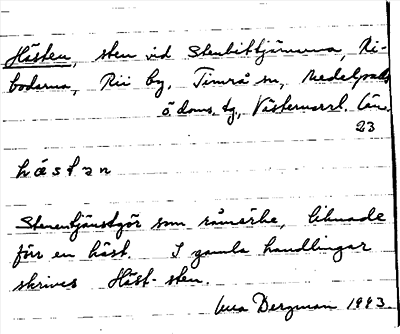 Hästen, sten vid Stenbittjärnarna, Ri-
bodarna, Rii by, Timrå sn, Medelpads
ö. doms. tg., Västernorrl. län.
23
hästan
Stenen tjänstgör som råmärke, liknade
förr en häst. I gamla handlingar
skrives Häst-sten.
Bergman 1943.